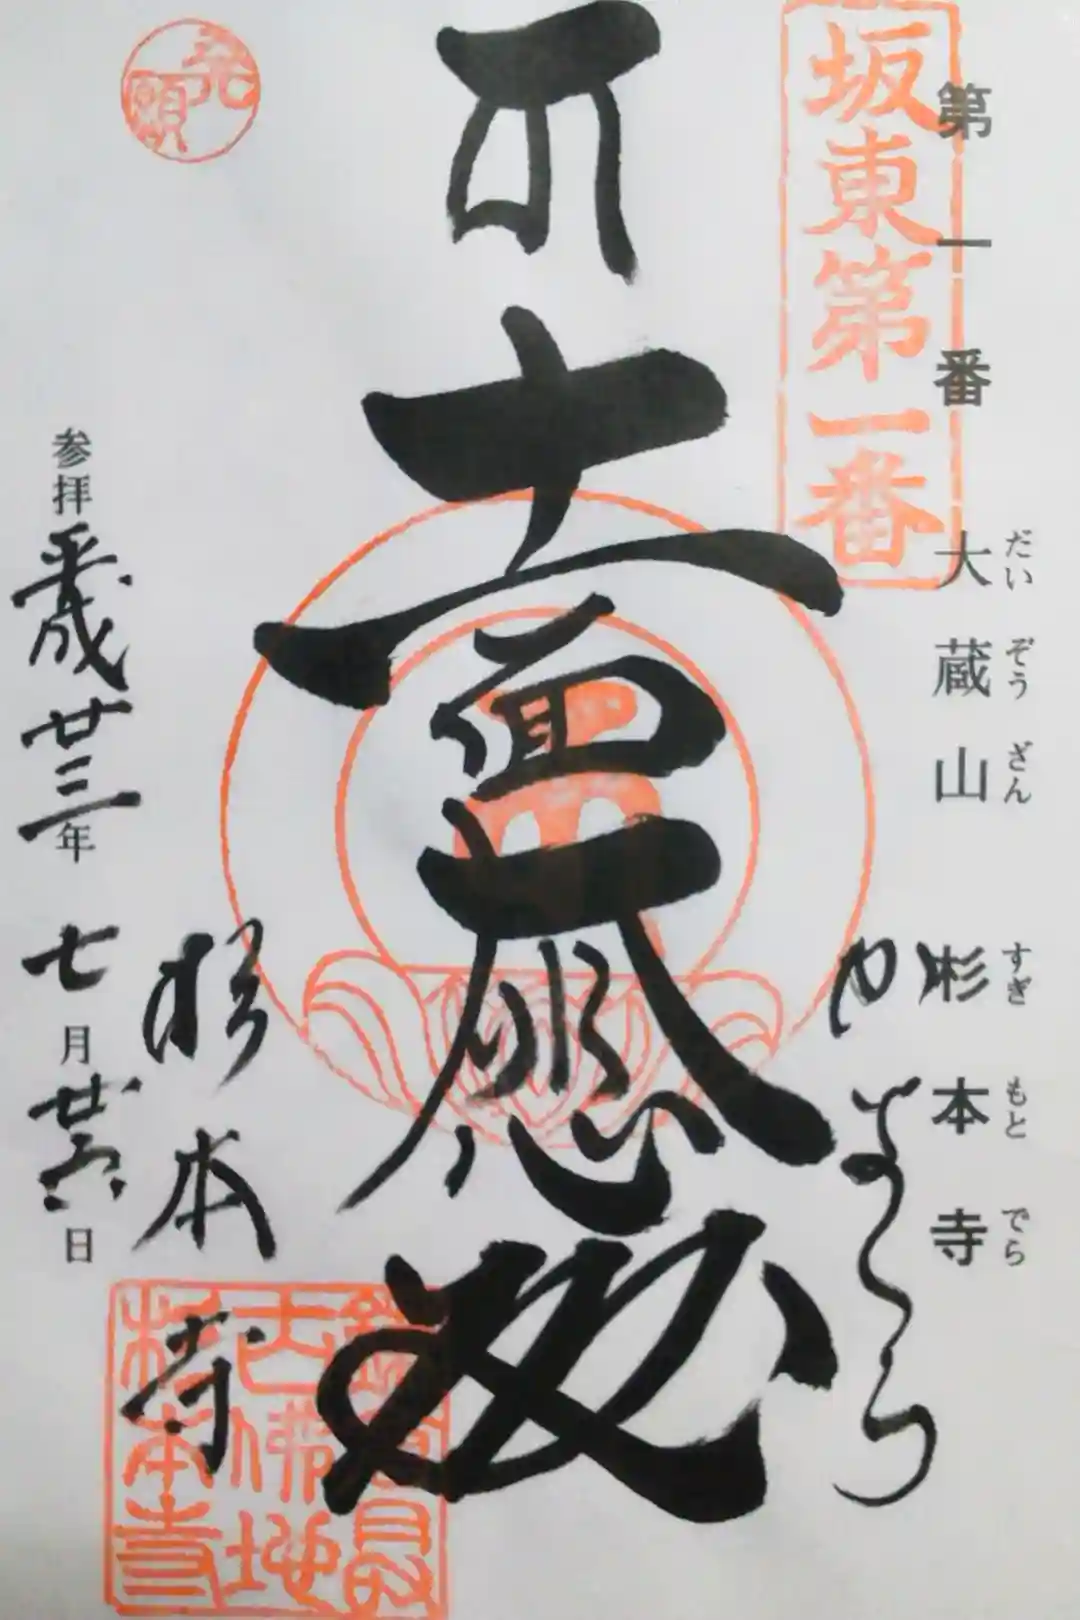 第一番
大蔵山
だいぞうざん
杉本寺
すぎもとでら
坂東第一番
かまくら
十一面大悲殿
発願
杉本寺
参拝平成廿三年七月廿六日
杉本寺